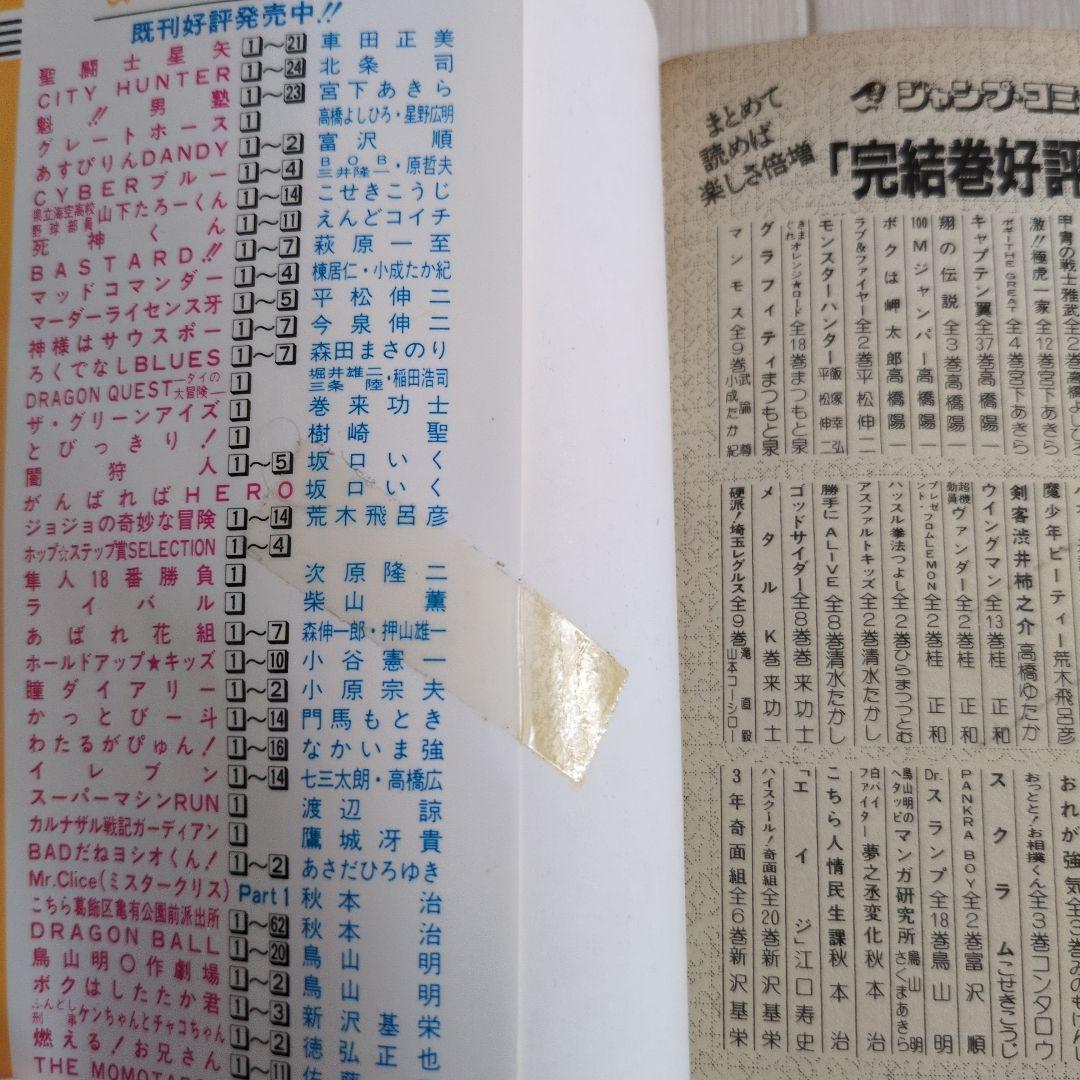 既刊好評発売中!!
聖闘士星矢 1〜21 車田正美
CITY HUNTER 1〜24 北条司
魁!!男塾 1〜23 宮下あきら
グレートホース 1 高橋よしひろ・星野広明
あすぴりんDANDY 1〜2 富沢順
CYBERブルー 1〜4 BOB・三井隆一・原哲夫
県立海空高校野球部員山下たろーくん 1〜14 こせきこうじ
死神くん 1〜11 えんどコイチ
BASTARD!! 1〜7 萩原一至
マッドコマンダー 1〜4 棟居仁・小成たか紀
マーダーライセンス牙 1〜5 平松伸二
神様はサウスポー 1〜7 今泉伸二
ろくでなしBLUES 1〜7 森田まさのり
DRAGON QUEST―ダイの大冒険― 1 堀井雄二・三条陸・稲田浩司
ザ・グリーンアイズ 1 巻来功士
とびっきり! 1 樹崎聖
闇狩人 1〜5 坂口いく
がんばればHERO 坂口いく
ジョジョの奇妙な冒険 1〜14 荒木飛呂彦
ホップ☆ステップ賞SELECTION 1〜4
隼人18番勝負 1 次原隆二
ライバル 1 柴山薫
あばれ花組 1〜7 森伸一郎・押山雄一
ホールドアップ★キッズ 1〜10 小谷憲一
瞳ダイアリー 1〜2 小原宗夫
かっとび一斗 1〜14 門馬もとき
わたるがぴゅん! 1〜16 なかいま強
イレブン 1〜14 七三太朗・高橋広
スーパーマシンRUN 1 渡辺諒
カルナザル戦記ガーディアン 1 鷹城冴貴
BADだねヨシオくん! 1〜2 あさだひろゆき
Mr.Clice(ミスタークリス) Part1 秋本治
こちら葛飾区亀有公園前派出所 1〜62 秋本治
DRAGON BALL 1〜20 鳥山明
鳥山明○作劇場 1〜2 鳥山明
ボクはしたたか君 1〜3 新沢基栄
ふんどし刑事ケンちゃんとチャコちゃん 1〜2 徳弘正也
燃える!お兄さん 1〜11 佐藤
THE MOMOTA
ジャンプ・コミ
まとめて
読めば
楽しさ倍増
「完結巻好評
甲冑の戦士雅武 全2巻
激!!極虎一家 全12巻 宮下あきら
ボギーTHE GREAT 全4巻 宮下あきら
キャプテン翼 全37巻 高橋陽一
翔の伝説 全3巻 高橋陽一
100Mジャンパー 高橋陽一
ボクは岬太郎 高橋陽一
ラブ&ファイヤー 全2巻 平松伸二
モンスターハンター 飯塚幸弘 平松伸二
きまぐれオレンジ★ロード 全18巻 まつもと泉
グラフィティ まつもと泉
マンモス 全9巻 武論尊 小成たか紀
魔少年ビーティー 荒木飛呂彦
剣客渋井柿之介 高橋ゆたか
ウイングマン 全13巻 桂正和
超機動員ヴァンダー 全2巻 桂正和
プレゼント・フロムLEMON 全2巻 桂正和
ハッスル拳法つよし 全2巻 ひらまつつとむ
アスファルトキッズ 全2巻 清水たかし
勝手にALIVE 全8巻 清水たかし
ゴッドサイダー 全8巻 巻来功士
メタルK 巻来功士
硬派!埼玉レグルス 全9巻 滝直毅 山本コーシロー
おれが強気 全3巻
おっとと!お相撲くん 全3巻 コンタロウ
スクラム こせきこうじ
PANKRA BOY 全2巻 富沢順
Dr.スランプ 全18巻 鳥山明
鳥山明のヘタッピマンガ研究所 鳥山明 さくまあきら
白バイファイター夢之丞変化 秋本治
こちら人情民生課 秋本治
「エイジ」江口寿史
ハイスクール!奇面組 全20巻 新沢基栄
3年奇面組 全6巻 新沢基栄